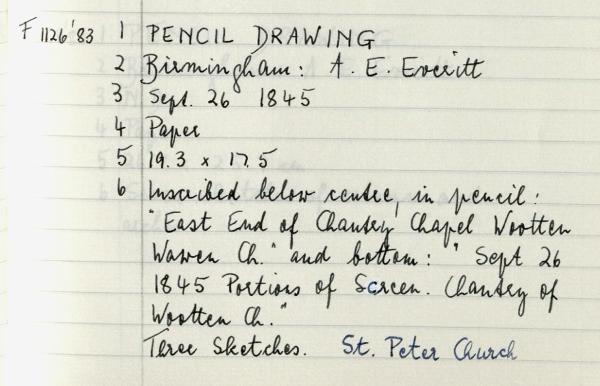 F 1126'83 1 PENCIL DRAWING
2 Birmingham: A. E. Everitt
3 Sept. 26 1845
4 Paper
5 19.3 x 17.5
6 Inscribed below centre, in pencil:
"East End of Chantry Chapel Wootten
Wawen Ch." and bottom: " Sept 26
1845 Portions of Screen. Chantry of
Wootten Ch."
Three Sketches. St. Peter Church